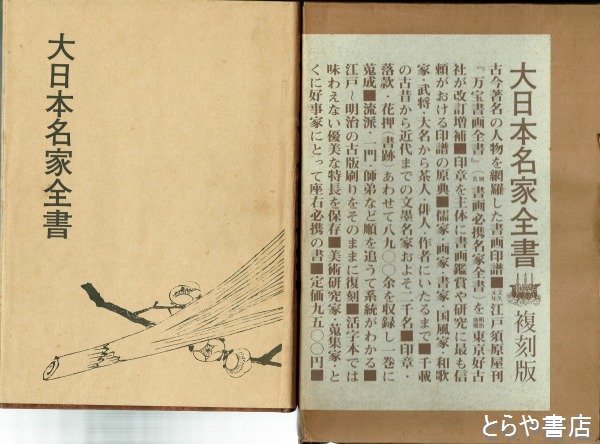 大日本名家全書
大日本名家全書 復刻版
古今著名の人物を網羅した書画印譜■江戸須原屋刊
『万宝書画全書』(書画必携名家全書)を東京好古
社が改訂増補■印章を主体に書画鑑賞や研究に最も信
頼がおける印譜の原典■儒家・画家・書家・国風家・和歌
家・武将・大名から茶人・俳人・作者にいたるまで■千載
の古昔から近代までの文墨名家およそ二千名■印章・
落款・花押(書跡)あわせて八九〇〇余を収録し一巻に
蒐成■流派・一門・師弟など順を追うて系統がわかる■
江戸〜明治の古版刷りをそのままに復刻■活字本では
味わえない優美な特長を保存■美術研究家・蒐集家・と
くに好事家にとって座右必携の書■定価九五〇〇円■
とらや書店